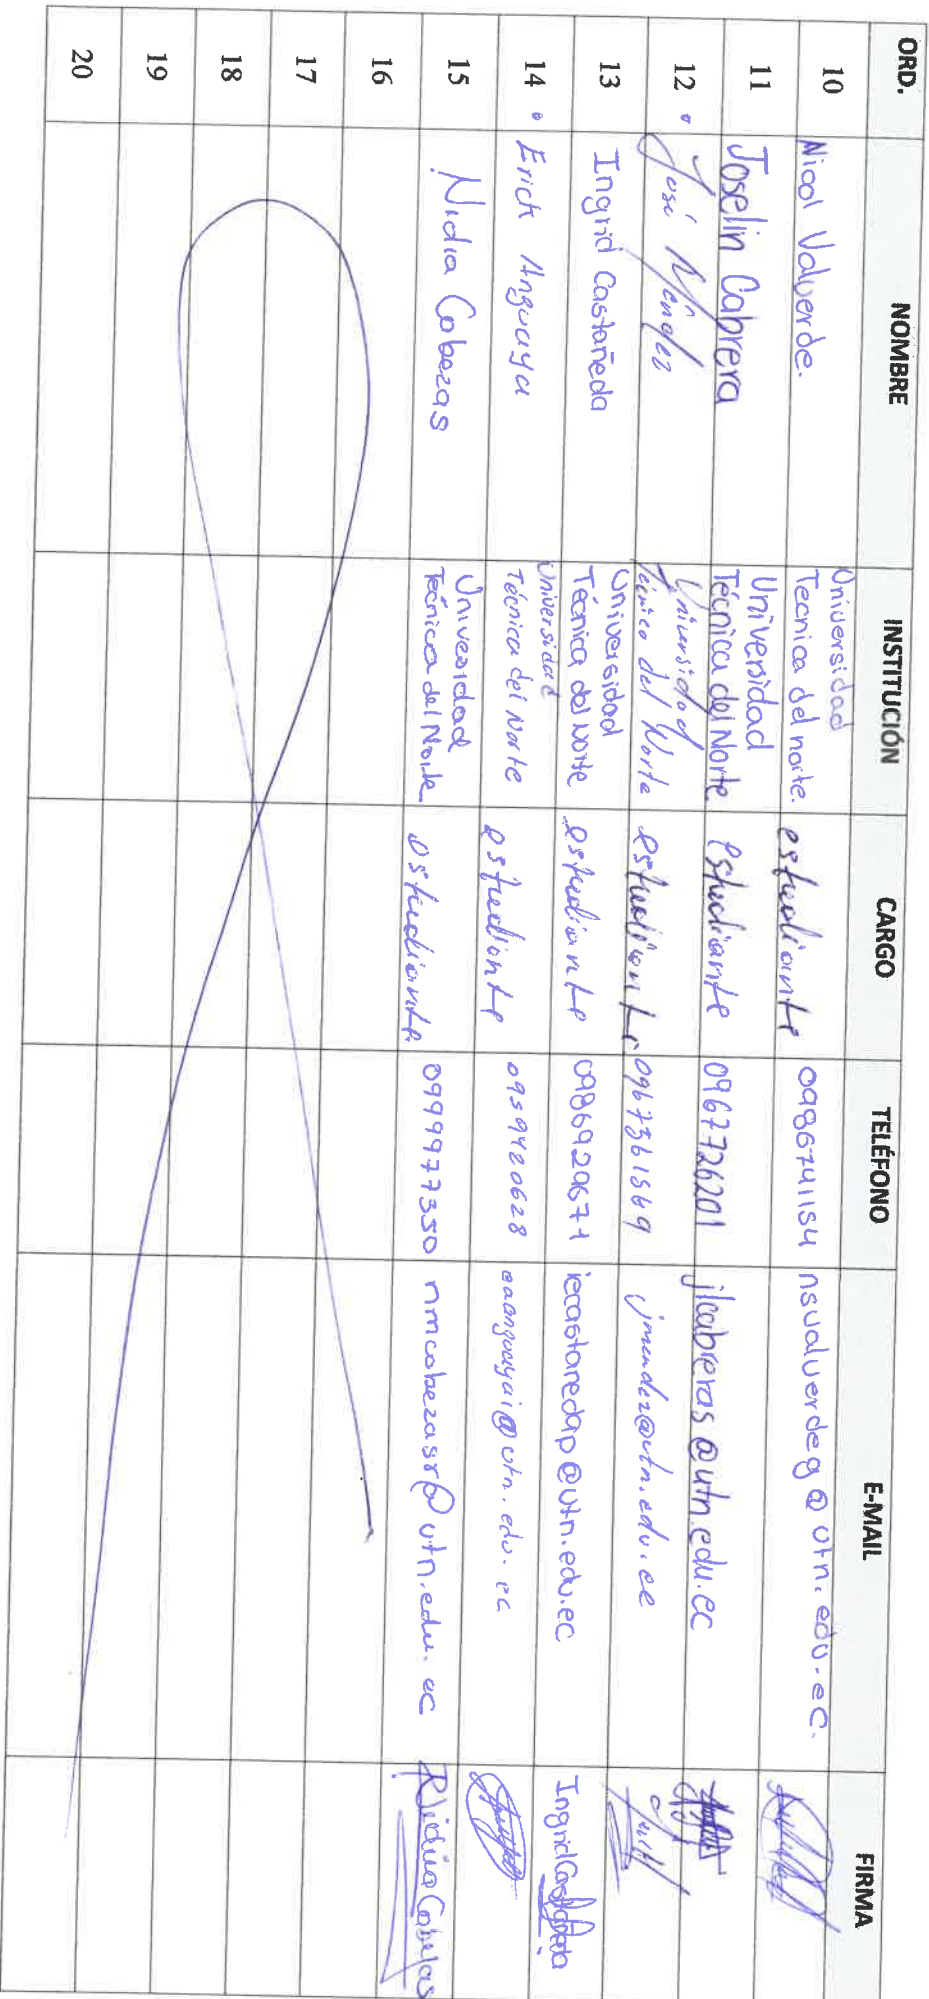 ORD. NOMBRE INSTITUCIÓN CARGO TELÉFONO E-MAIL FIRMA
10 Nicol Valverde. Universidad Tecnica del norte. estudiante 0986741154 nsvalverdeg@utn.edu.ec.
11 Joselin Cabrera Universidad Técnica del Norte estudiante 0967726201 jlcabreras@utn.edu.ec
12 José Méndez Universidad Técnica del Norte estudiante 0967361569 jmendez@utn.edu.ec
13 Ingrid Castañeda Universidad Técnica del Norte estudiante 0986920671 iecastaredap@utn.edu.ec Ingrid Castañeda
14 Erick Anguaya Universidad Técnica del Norte estudiante 0959420628 eaanguayai@utn.edu.ec
15 Nidia Cabezas Univesidad Técnica del Norte estudiante 0999977350 nmcabezasr@utn.edu.ec Nidia Cabezas
16
17
18
19
20